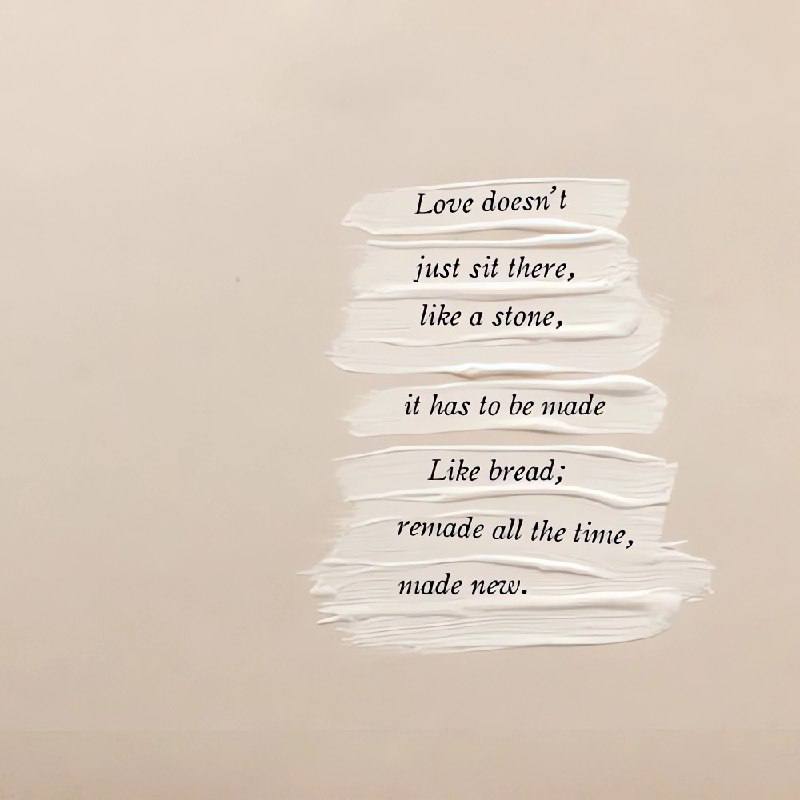 Love doesn't
just sit there,
like a stone,
it has to be made
Like bread;
remade all the time,
made new.